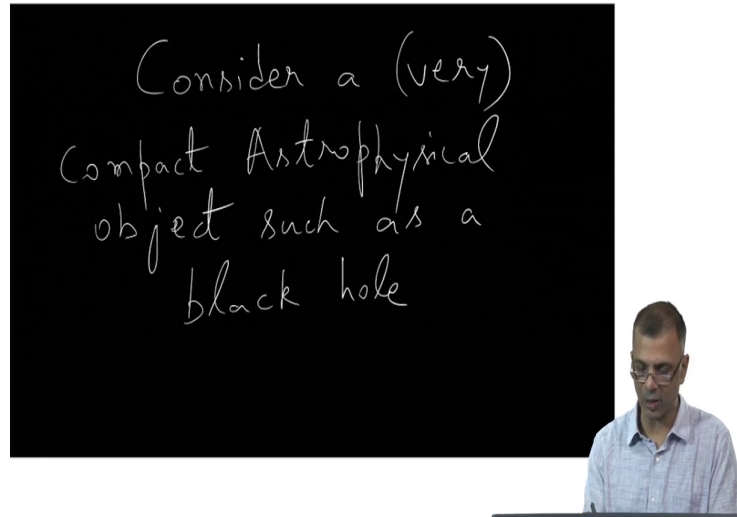 Consider a (very)
Compact Astrophysical
object such as a
black hole